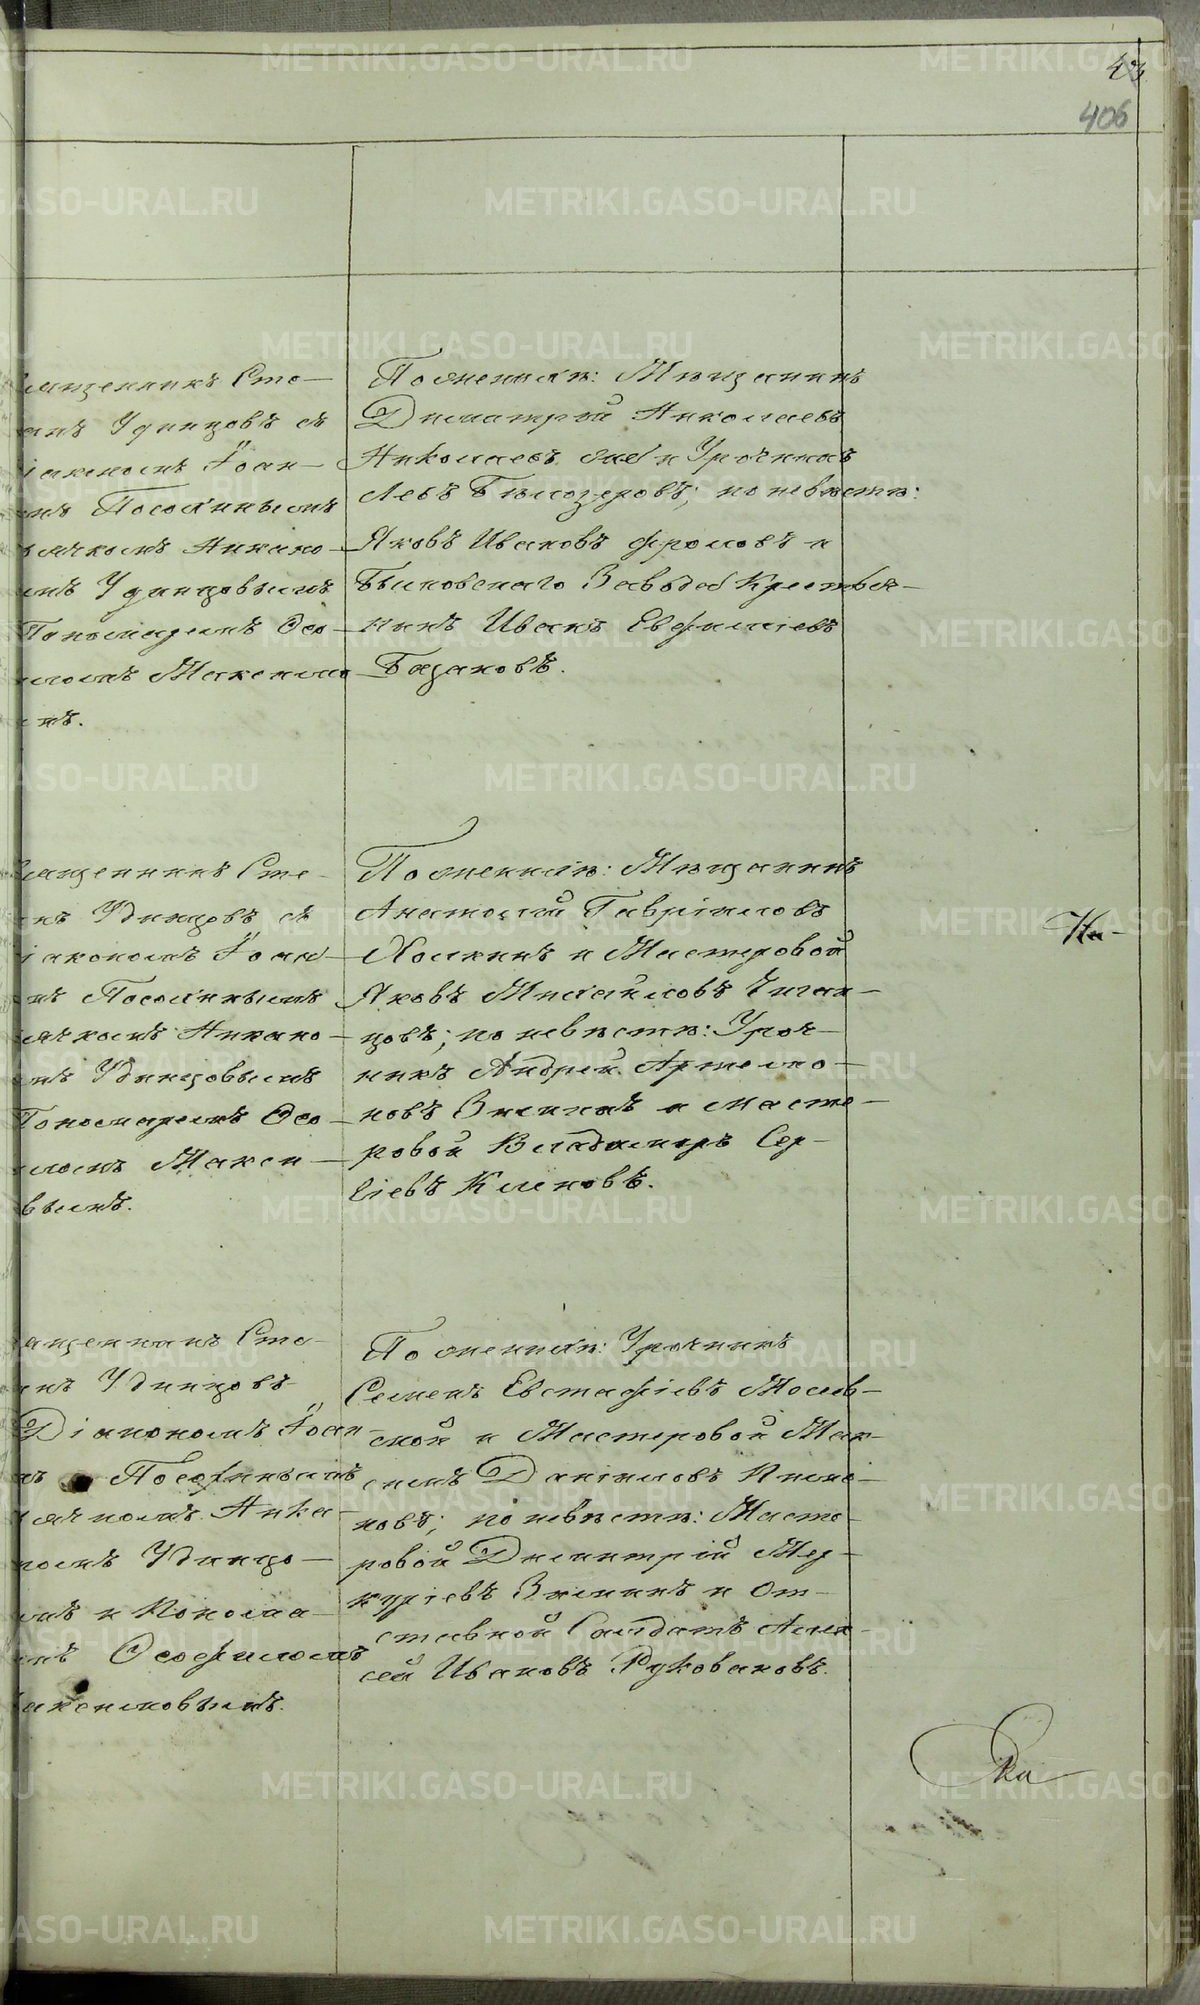 43
406
ященникъ Сте–
анъ Удинцовъ съ
іакономъ Іоан–
омъ Посохинымъ
ьячкомъ Никано–
мъ Удинцовымъ
Пономаремъ Ѳео–
иломъ Максимо
мъ.
По женихѣ: Мѣщанинъ
Димитрій Николаевъ
Николаевъ и Урочникъ
Левъ Бѣлозеровъ; по невѣстѣ:
Яковъ Ивановъ Фроловъ и
Быньговскаго Завода Крестья–
нинъ Иванъ Евфиміевъ
Базановъ.
ященникъ Сте–
нъ Удинцовъ съ
іакономъ Іоан–
мъ Посохинымъ
ячкомъ Никано–
мъ Удинцовымъ
Пономаремъ Ѳео–
иломъ Макси–
вымъ.
По женихѣ: Мѣщанинъ
Анатолій Гавріиловъ
Холкинъ и Мастеровой
Яковъ Михайловъ Чиган–
цовъ; по невѣстѣ: Уроч–
никъ Андрей Артемо–
новъ Зыкинъ и масте–
ровой Владимиръ Сер–
гіевъ Климовъ.
На–
ященникъ Сте–
нъ Удинцовъ
Діакономъ Іоан
мъ Посохинымъ
ячкомъ Ника–
ромъ Удинцо–
мъ и Понома–
мъ Ѳеофиломъ
аксимовымъ.
По женихѣ: Урочникъ
Семенъ Евстафіевъ Мосов–
ской и Мастеровой Мак–
симъ Даніиловъ
новъ; по невѣстѣ: Масте–
ровой Димитрій Мер–
куріевъ Зыкинъ и От–
ставной Салдатъ Алек–
сѣй Ивановъ Руковановъ.
METRIKI.GASO-URAL.RU